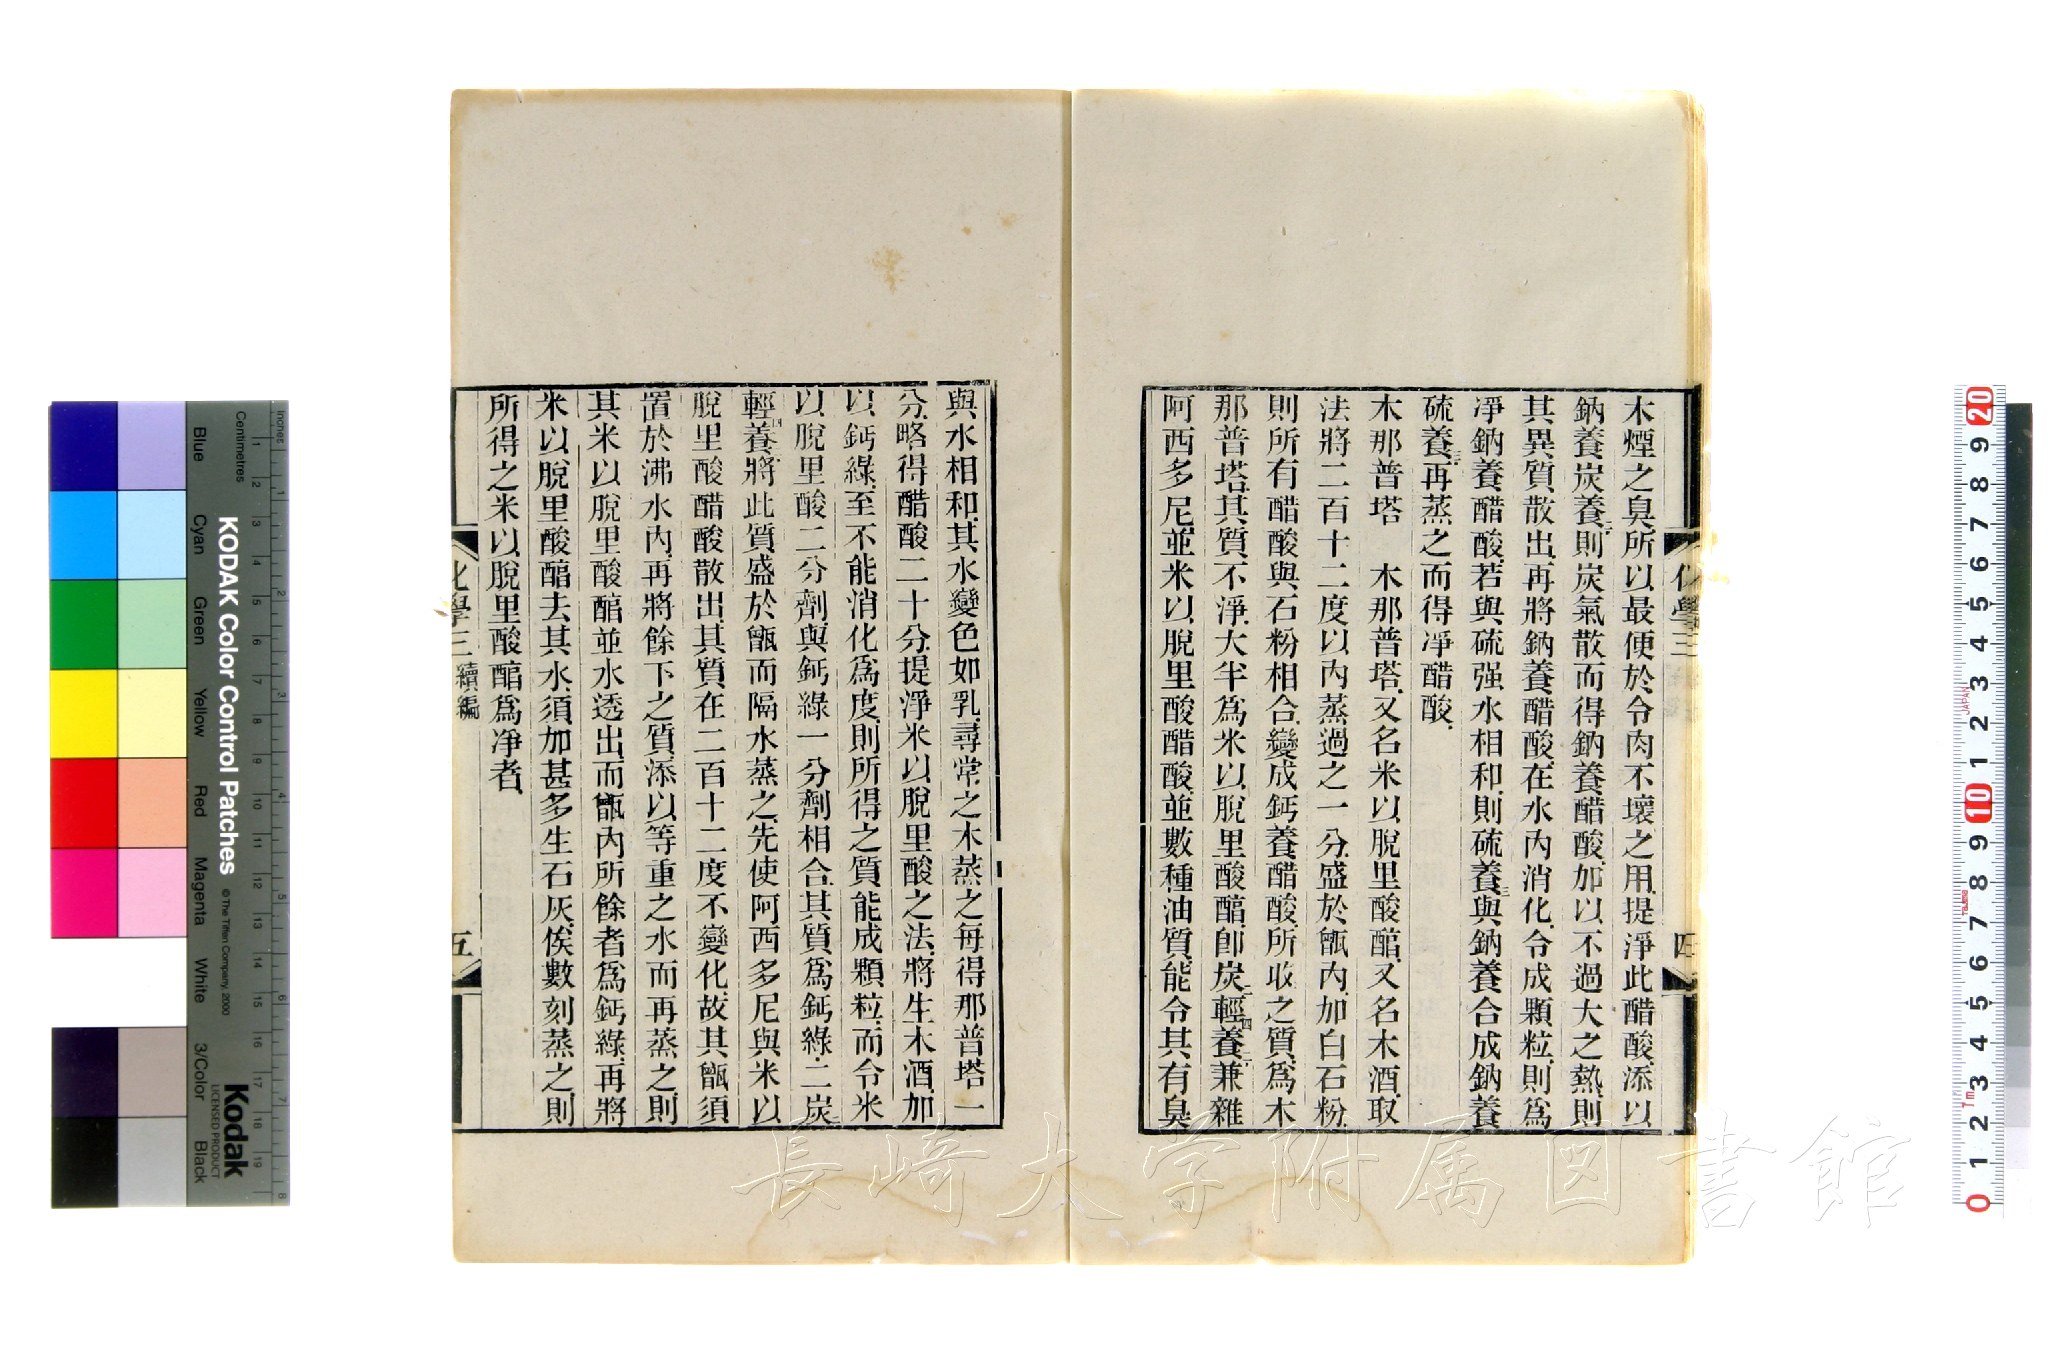 木煙之臭所以最便於令肉不壞之用提淨此醋酸添以
鈉養炭養二則炭氣散而得鈉養醋酸加以不過大之熱則
其異質散出再將鈉養醋酸在水內消化令成顆粒則爲
凈鈉養醋酸若與硫强水相和則硫養三與鈉養合成鈉養
硫養三再蒸之而得凈醋酸
木那普塔 木那普塔又名米以脫里酸醕又名木酒取
法將二百十二度以內蒸過之一分盛於甑內加白石粉
則所有醋酸與石粉相合變成鈣養醋酸所收之質爲木
那普塔其質不淨大半爲米以脫里酸醕卽炭二輕四養二兼雜
阿西多尼並米以脫里酸醋酸並數種油質能令其有臭
化學三
四
與水相和其水變色如乳尋常之木蒸之每得那普塔一
分略得醋酸二十分提淨米以脫里酸之法將生木酒加
以鈣綠至不能消化爲度則所得之質能成顆粒而令米
以脫里酸二分劑與鈣綠一分劑相合其質爲鈣綠二炭二
輕四養二將此質盛於甑而隔水蒸之先使阿西多尼與米以
脫里酸醋酸散出其質在二百十二度不變化故其甑須
置於沸水內再將餘下之質添以等重之水而再蒸之則
其米以脫里酸醕並水透出而甑內所餘者爲鈣綠再將
米以脫里酸醕去其水須加甚多生石灰俟數刻蒸之則
所得之米以脫里酸醕爲凈者
化學三 續編
五
長崎大学附属図書館
KODAK Color Control Patches
© The Tiffen Company, 2000
Kodak
LICENSED PRODUCT
Inches
Centimetres
Blue
Cyan
Green
Yellow
Red
Magenta
White
3/Color
Black
1 2 3 4 5 6 7 8
1 2 3 4 5 6 7 8 9 10 11 12 13 14 15 16 17 18 19
20 9 8 7 6 5 4 3 2 1 10 9 8 7 6 5 4 3 2 1 0
JAPAN
Tajima